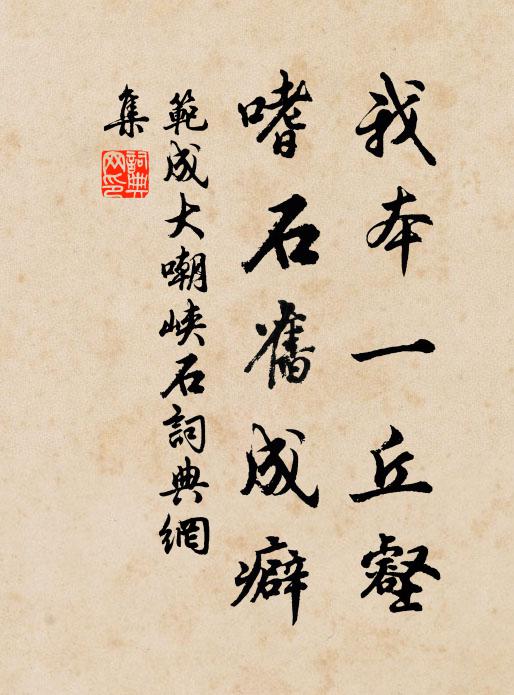 我本一丘壑
嗜石舊成癖
範成大嘲峽石詞典網
集
詞典網印